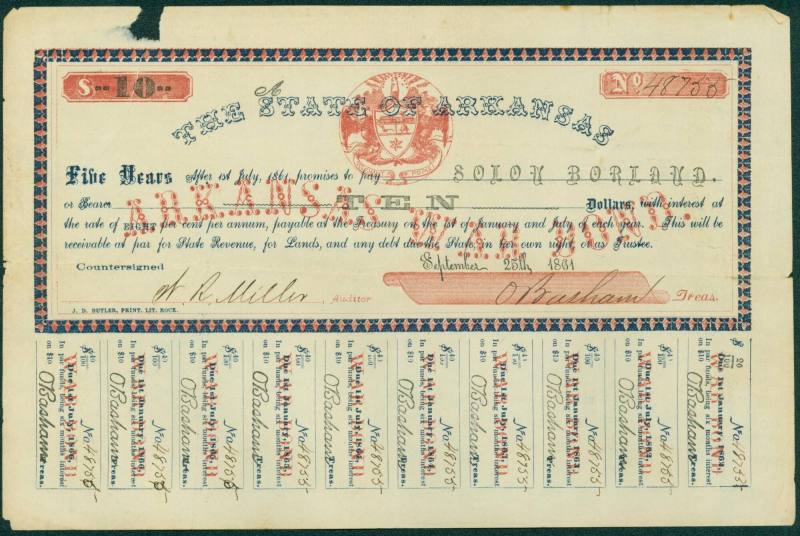 $ --10--
A
No. 48755
THE STATE OF ARKANSAS
Five Years After 1st July, 1861 promises to pay SOLON BORLAND.
or Bearer TEN Dollars, with interest at
the rate of EIGHT per cent per annum, payable at the Treasury on the 1st of January and July of each year. This will be
receivable at par for State Revenue, for Lands, and any debt due the State, in her own right, or as Trustee.
ARKANSAS WAR BOND.
September 25th 1861
Countersigned
W. R. Miller, Auditor
O Basham Treas.
J. D. BUTLER, PRINT. LIT. ROCK.
$ 40/100 No 48755
Due 1st July, 1866.
In par funds, being six months interest
on $10 O Basham Treas.
$ 40/100 No 48755
Due 1st January, 1866.
In par funds, being six months interest
on $10 O Basham Treas.
$ 40/100 No 48755
Due 1st July, 1865.
In par funds, being six months interest
on $10 O Basham Treas.
$ 40/100 No 48755
Due 1st January, 1865.
In par funds, being six months interest
on $10 O Basham Treas.
$ 40/100 No 48755
Due 1st July, 1864.
In par funds, being six months interest
on $10 O Basham Treas.
$ 40/100 No 48755
Due 1st January, 1864.
In par funds, being six months interest
on $10 O Basham Treas.
$ 40/100 No 48755
Due 1st July, 1863.
In par funds, being six months interest
on $10 O Basham Treas.
$ 40/100 No 48755
Due 1st January, 1863.
In par funds, being six months interest
on $10 O Basham Treas.
$ 40/100 No 48755
Due 1st July, 1862.
In par funds, being six months interest
on $10 O Basham Treas.
$ 20/100 No 48755
Due 1st January, 1862.
In par funds, being six months interest
on $10 O Basham Treas.